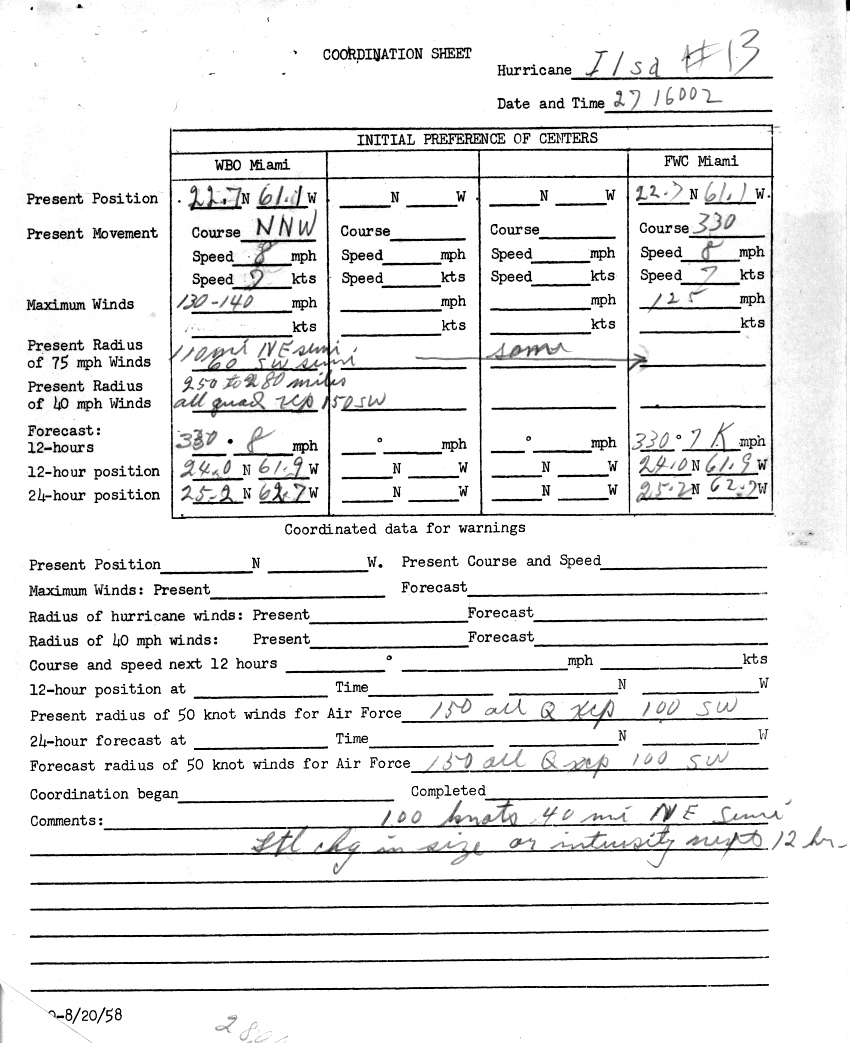 COORDINATION SHEET
Hurricane Ilsa #13
Date and Time 27 1600Z
INITIAL PREFERENCE OF CENTERS
WBO Miami FWC Miami
Present Position 22.7 N 61.1 W ____ N ____ W ____ N ____ W 22.7 N 61.1 W.
Present Movement Course NNW Course ____ Course ____ Course 330
Speed 8 mph Speed ____ mph Speed ____ mph Speed 8 mph
Speed 7 kts Speed ____ kts Speed ____ kts Speed 7 kts
Maximum Winds 130-140 mph ____ mph ____ mph 125 mph
____ kts ____ kts ____ kts ____ kts
Present Radius 110 mi NE semi. same
of 75 mph Winds 60 SW semi
Present Radius 250 to 280 miles
of 40 mph Winds all quad xcp 150 SW
Forecast:
12-hours 330° 8 mph ____° ____ mph ____° ____ mph 330° 7 K mph
12-hour position 24.0 N 61.9 W ____ N ____ W ____ N ____ W 24.0 N 61.9 W
24-hour position 25.2 N 62.7 W ____ N ____ W ____ N ____ W 25.2 N 62.7 W
Coordinated data for warnings
Present Position ____ N ____ W. Present Course and Speed ____
Maximum Winds: Present ____ Forecast ____
Radius of hurricane winds: Present ____ Forecast ____
Radius of 40 mph winds: Present ____ Forecast ____
Course and speed next 12 hours ____° ____ mph ____ kts
12-hour position at ____ Time ____ ____ N ____ W
Present radius of 50 knot winds for Air Force 150 all Q xcp 100 SW
24-hour forecast at ____ Time ____ ____ N ____ W
Forecast radius of 50 knot winds for Air Force 150 all Q xcp 100 SW
Coordination began ____ Completed ____
Comments: 100 knots 40 mi NE semi.
Ltl chg in size or intensity next 12 hr.
-8/20/58